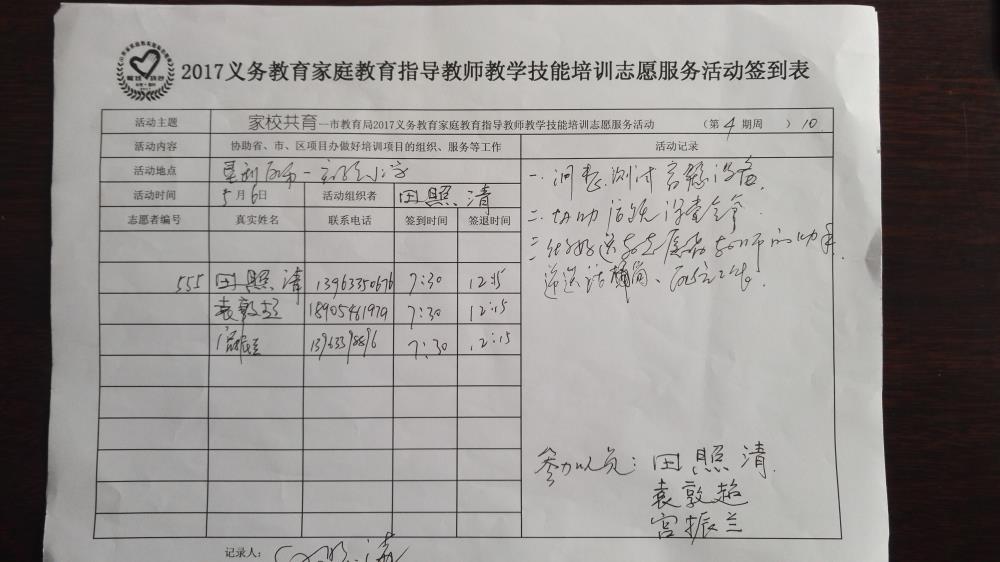 2017义务教育家庭教育指导教师教学技能培训志愿服务活动签到表
活动主题 家校共育—市教育局2017义务教育家庭教育指导教师教学技能培训志愿服务活动 （第4期周 ）10.
活动内容 协助省、市、区项目办做好培训项目的组织、服务等工作 活动记录
活动地点
活动时间 5月6日 活动组织者 田照清
志愿者编号 真实姓名 联系电话 签到时间 签退时间
555 田照清 13963350676 7:30 12:15
袁敦超 18905461979 7:30 12:15
宫振兰 13963398896 7:30 12:15
一. 调整、测试音响设备.
二. 协助
三 做好
递送话筒、
参加人员: 田照清.
袁敦超
宫振兰
记录人: